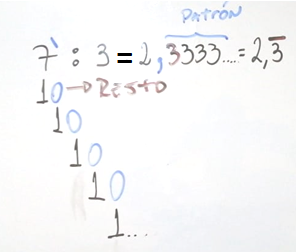 PATRÓN
7 : 3 = 2,3333..... = 2,3̅
10 → RESTO
10
10
10
1....